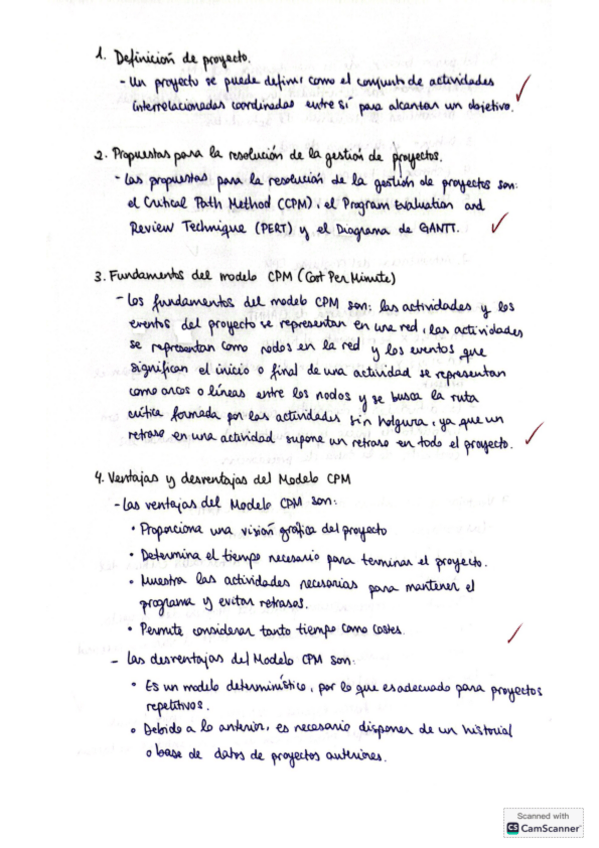 1. Definición de proyecto.
- Un proyecto se puede definir como el conjunto de actividades
interrelacionadas coordinadas entre sí para alcanzar un objetivo.
2. Propuestas para la resolución de la gestión de proyectos.
- Las propuestas para la resolución de la gestión de proyectos son:
el Critical Path Method (CPM), el Program Evaluation and
Review Technique (PERT) y el Diagrama de GANTT.
3. Fundamentos del modelo CPM (Cost Per Minute)
- Los fundamentos del modelo CPM son: las actividades y los
eventos del proyecto se representan en una red, las actividades
se representan como nodos en la red y los eventos que
significan el inicio o final de una actividad se representan
como arcos o líneas entre los nodos y se busca la ruta
crítica formada por las actividades sin holgura, ya que un
retraso en una actividad supone un retraso en todo el proyecto.
4. Ventajas y desventajas del Modelo CPM
- Las ventajas del Modelo CPM son:
• Proporciona una visión gráfica del proyecto
• Determina el tiempo necesario para terminar el proyecto.
• Muestra las actividades necesarias para mantener el
programa y evitar retrasos.
• Permite considerar tanto tiempo como costes.
- Las desventajas del Modelo CPM son:
• Es un modelo determinístico, por lo que es adecuado para proyectos
repetitivos.
• Debido a lo anterior, es necesario disponer de un historial
o base de datos de proyectos anteriores.
Scanned with
CS CamScanner